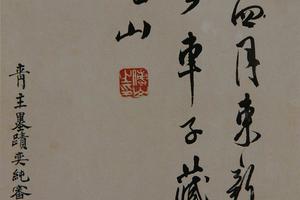 四月東新
車子藏
山
主墨蹟奕純審